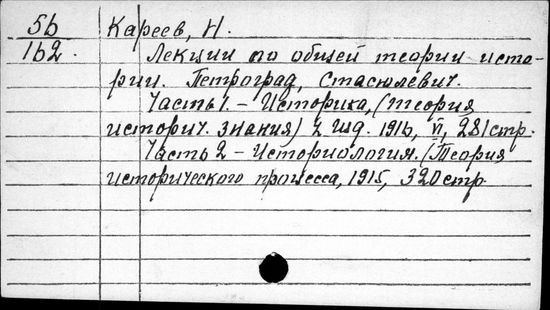 56
162.
Кареев, Н.
Лекции по общей теории исто-
рии. Петроград, Стасюлевич.
Часть 1. – Историка, (теория
историч. знания) 2 изд. 1916, VI, 281 стр.
Часть 2 – Историология. (Теория
исторического процесса, 1915, 320 стр.